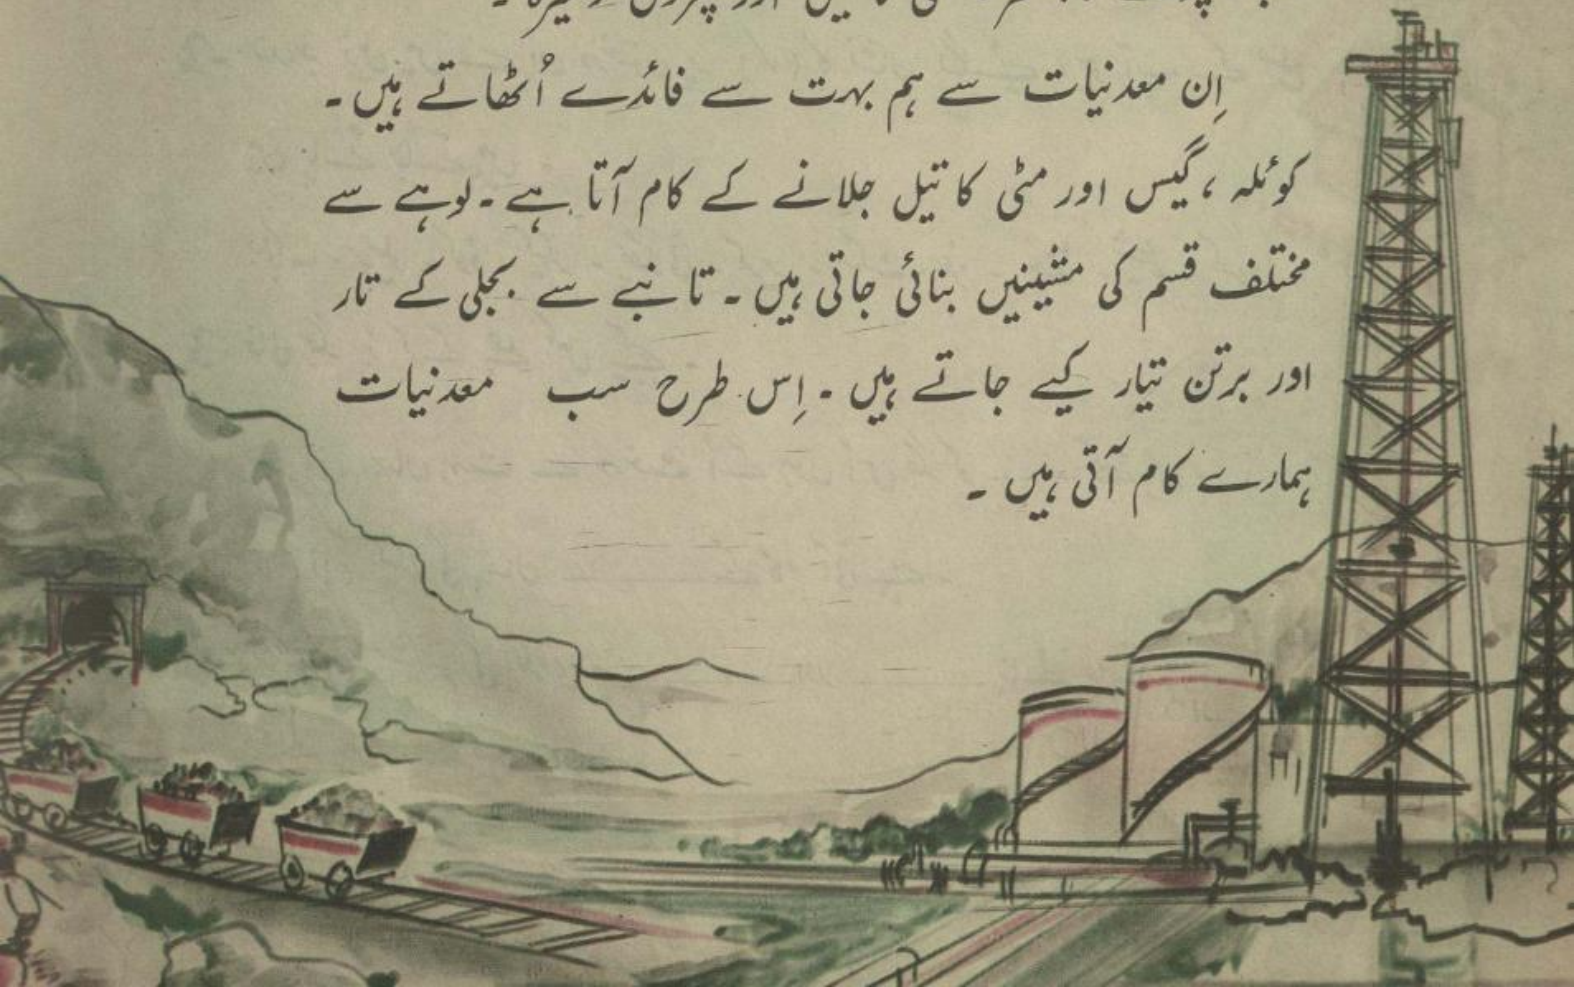 اِن معدنیات سے ہم بہت سے فائدے اُٹھاتے ہیں۔
کوئلہ ، گیس اور مٹی کا تیل جلانے کے کام آتا ہے۔ لوہے سے
مختلف قسم کی مشینیں بنائی جاتی ہیں۔ تانبے سے بجلی کے تار
اور برتن تیار کیے جاتے ہیں۔ اِس طرح سب معدنیات
ہمارے کام آتی ہیں۔